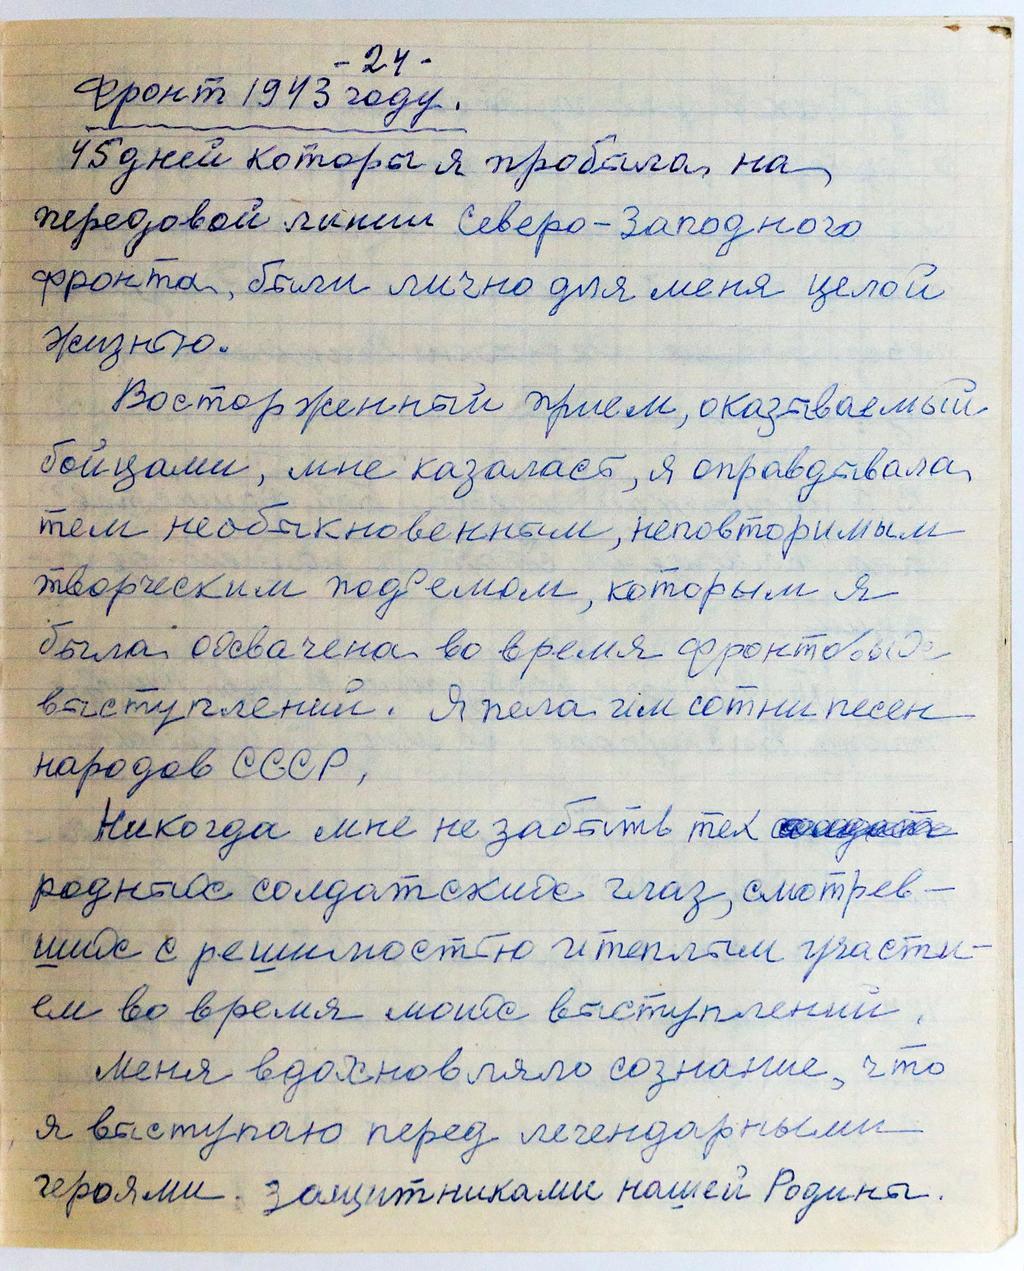 - 24 -
Фронт 1943 году.
45 дней которы я пробыла на
передовой линии Северо-Западного
фронта, были лично для меня целой
жизнью.
Восторженный прием, оказываемый
бойцами, мне казалась, я оправдывала
тем необыкновенным, неповторимым
творческим подъемом, которым я
была охвачена во время фронтовых
выступлений. Я пела им сотни песен
народов СССР,
Никогда мне не забыть тех
родных солдатских глаз, смотрев-
ших с решимостью и теплым участи-
ем во время моих выступлений.
Меня вдохновляло сознание, что
я выступаю перед легендарными
героями. защитниками нашей Родины.